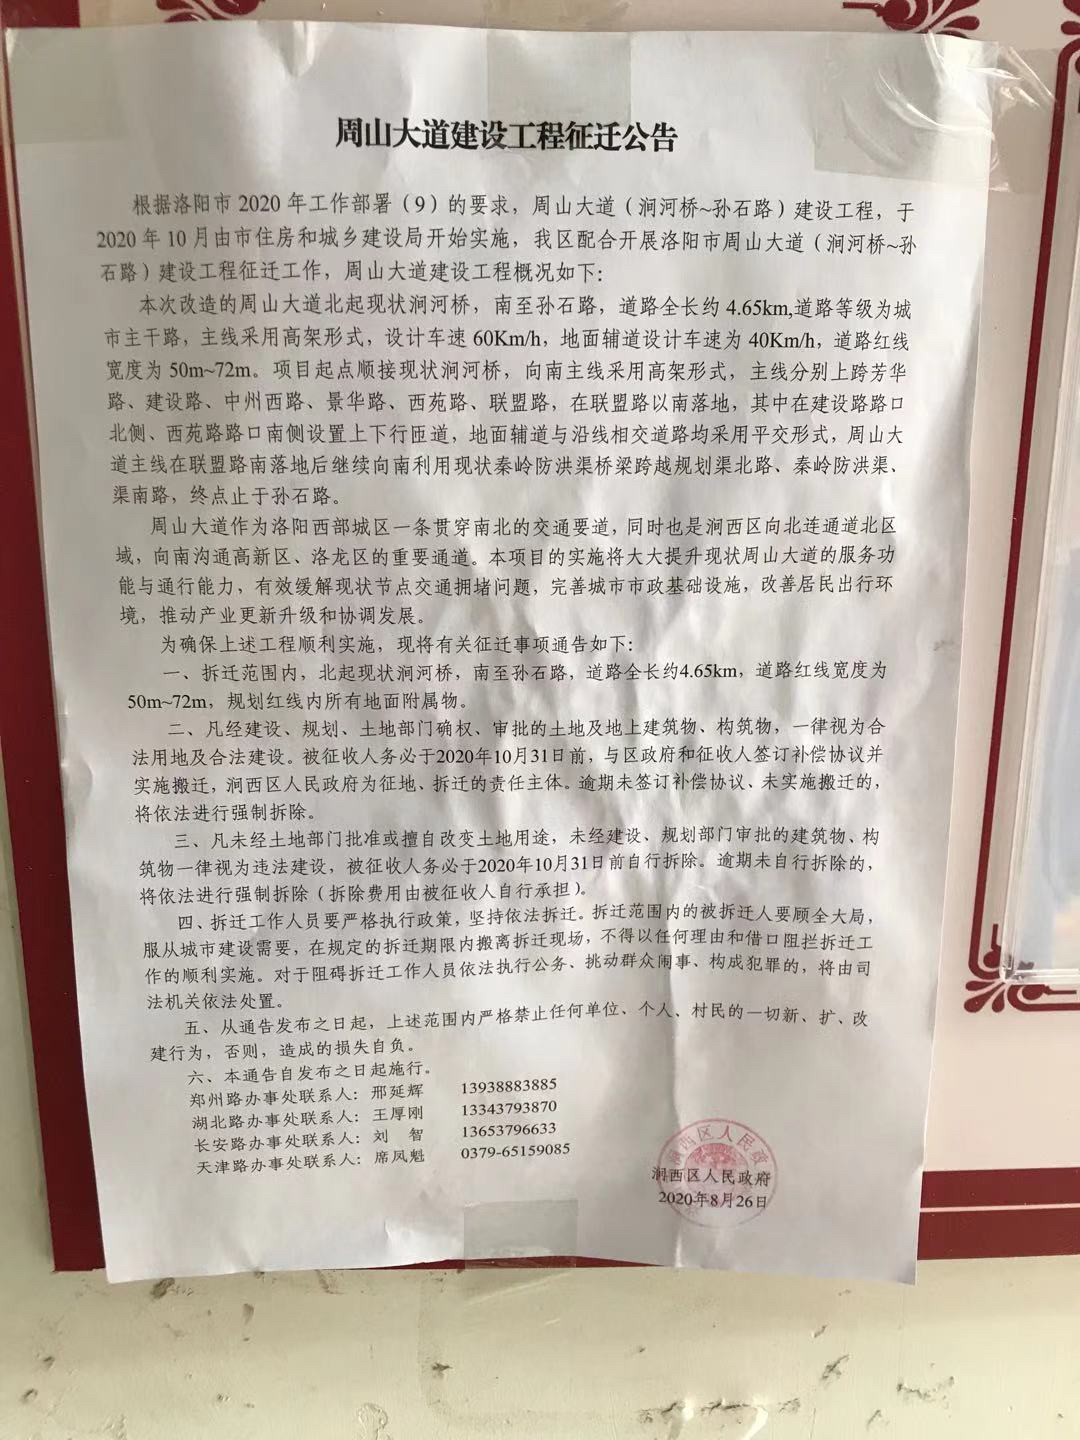 周山大道建设工程征迁公告
根据洛阳市 2020 年工作部署（9）的要求，周山大道（涧河桥~孙石路）建设工程，于
2020 年 10 月由市住房和城乡建设局开始实施，我区配合开展洛阳市周山大道（涧河桥~孙
石路）建设工程征迁工作，周山大道建设工程概况如下：
本次改造的周山大道北起现状涧河桥，南至孙石路，道路全长约 4.65km,道路等级为城
市主干路，主线采用高架形式，设计车速 60Km/h，地面辅道设计车速为 40Km/h，道路红线
宽度为 50m~72m。项目起点顺接现状涧河桥，向南主线采用高架形式，主线分别上跨芳华
路、建设路、中州西路、景华路、西苑路、联盟路，在联盟路以南落地，其中在建设路路口
北侧、西苑路路口南侧设置上下行匝道，地面辅道与沿线相交道路均采用平交形式，周山大
道主线在联盟路南落地后继续向南利用现状秦岭防洪渠桥梁跨越规划渠北路、秦岭防洪渠、
渠南路，终点止于孙石路。
周山大道作为洛阳西部城区一条贯穿南北的交通要道，同时也是涧西区向北连通道北区
域，向南沟通高新区、洛龙区的重要通道。本项目的实施将大大提升现状周山大道的服务功
能与通行能力，有效缓解现状节点交通拥堵问题，完善城市市政基础设施，改善居民出行环
境，推动产业更新升级和协调发展。
为确保上述工程顺利实施，现将有关征迁事项通告如下：
一、拆迁范围内，北起现状涧河桥，南至孙石路，道路全长约4.65km，道路红线宽度为
50m~72m，规划红线内所有地面附属物。
二、凡经建设、规划、土地部门确权、审批的土地及地上建筑物、构筑物，一律视为合
法用地及合法建设。被征收人务必于2020年10月31日前，与区政府和征收人签订补偿协议并
实施搬迁，涧西区人民政府为征地、拆迁的责任主体。逾期未签订补偿协议、未实施搬迁的，
将依法进行强制拆除。
三、凡未经土地部门批准或擅自改变土地用途，未经建设、规划部门审批的建筑物、构
筑物一律视为违法建设，被征收人务必于2020年10月31日前自行拆除。逾期未自行拆除的，
将依法进行强制拆除（拆除费用由被征收人自行承担）。
四、拆迁工作人员要严格执行政策，坚持依法拆迁。拆迁范围内的被拆迁人要顾全大局，
服从城市建设需要，在规定的拆迁期限内搬离拆迁现场，不得以任何理由和借口阻拦拆迁工
作的顺利实施。对于阻碍拆迁工作人员依法执行公务、挑动群众闹事、构成犯罪的，将由司
法机关依法处置。
五、从通告发布之日起，上述范围内严格禁止任何单位、个人、村民的一切新、扩、改
建行为，否则，造成的损失自负。
六、本通告自发布之日起施行。
郑州路办事处联系人：邢延辉 13938883885
湖北路办事处联系人：王厚刚 13343793870
长安路办事处联系人：刘 智 13653796633
天津路办事处联系人：席凤魁 0379-65159085
涧西区人民政府
2020年8月26日